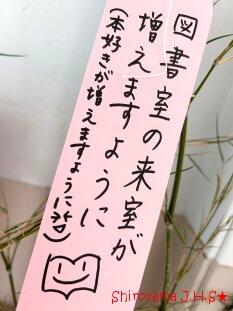 図書室の来室が
増えますように
(本好きが増えますように)
Shiroyama J.H.S★